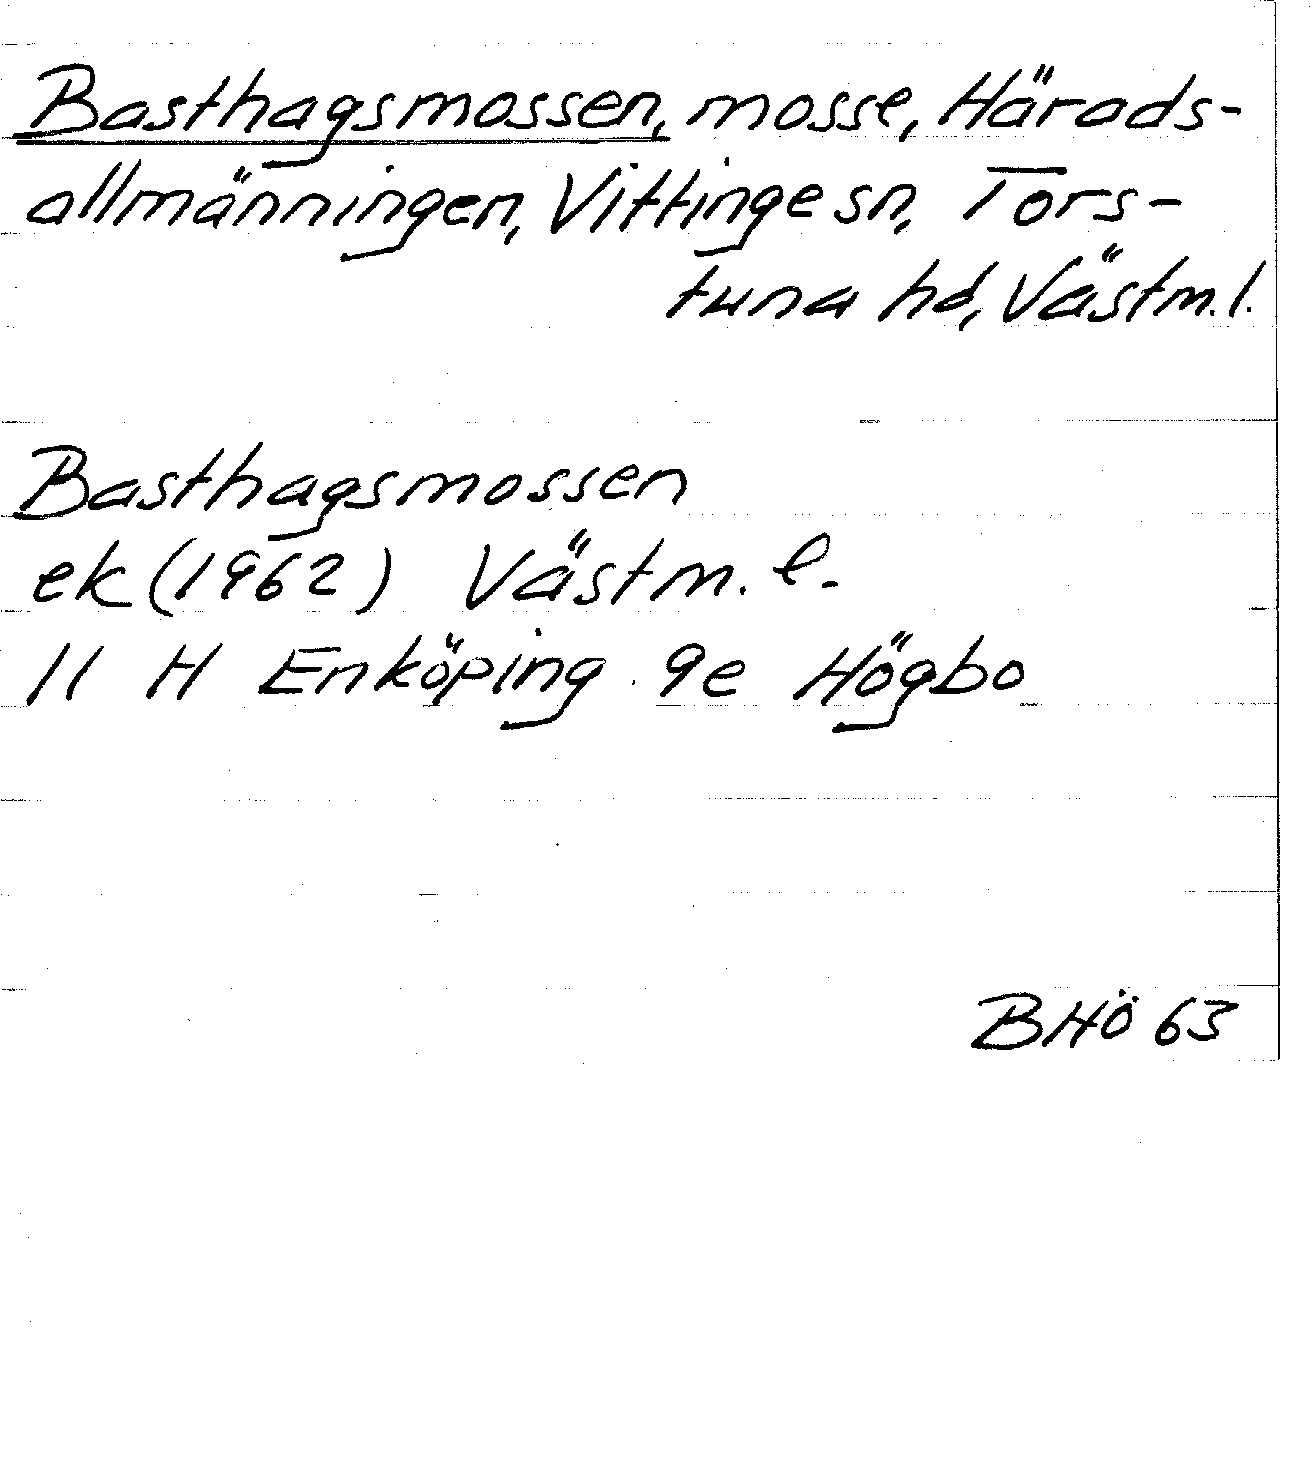 Basthagsmossen, mosse, Härads-
allmänningen, Vittinge sn, Tors-
tuna hd, Västm. l.
Basthagsmossen
ek (1962) Västm. l.
11 H Enköping 9e Högbo
BHÖ 63